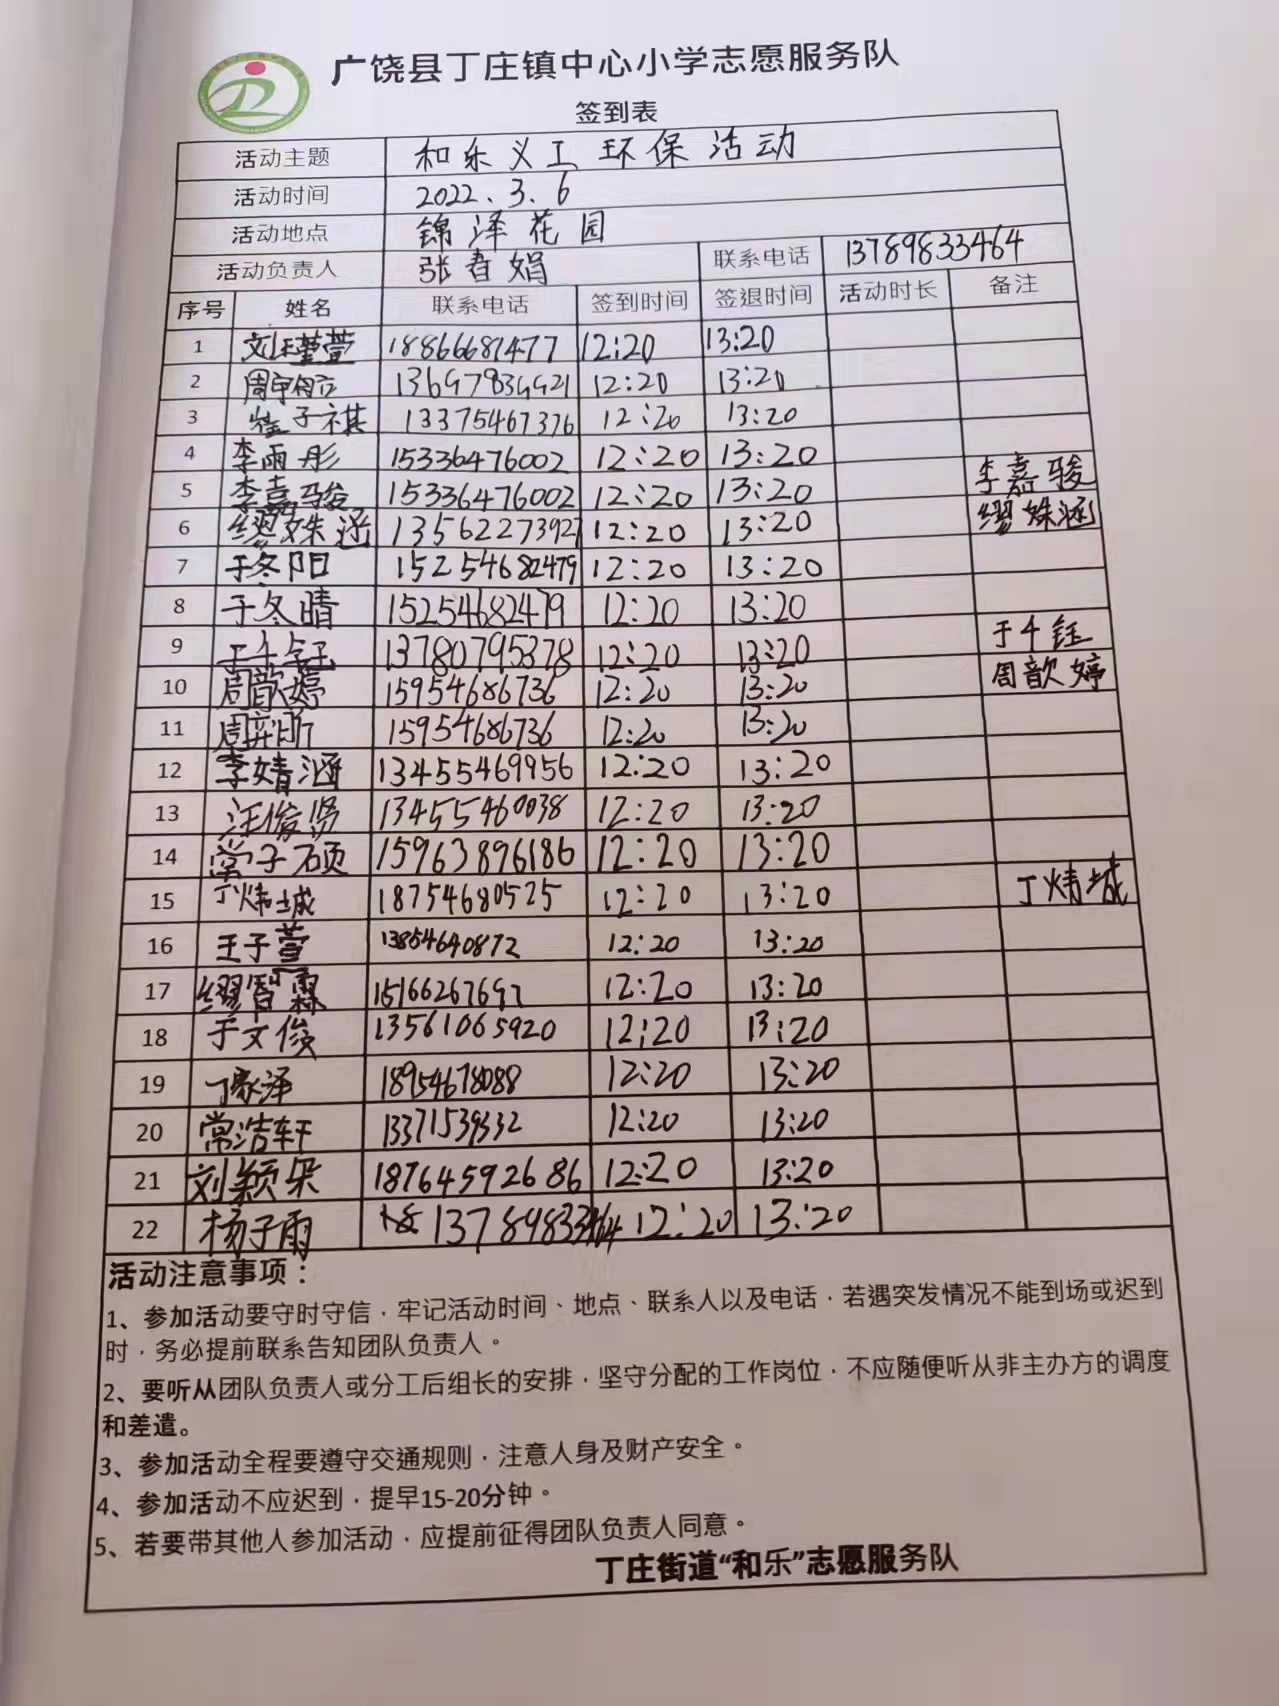 广饶县丁庄镇中心小学志愿服务队
签到表
活动主题 和乐义工环保活动
活动时间 2022.3.6
活动地点 锦泽花园
活动负责人 张春娟 联系电话 13789833464
序号 姓名 联系电话 签到时间 签退时间 活动时长 备注
1 18866681477 12:20 13:20
2 13697834921 12:20 13:20
3 子祺 13375467376 12:20 13:20
4 李雨彤 15336476002 12:20 13:20
5 李嘉骏 15336476002 12:20 13:20 李嘉骏
6 缪姝涵 13562273927 12:20 13:20 缪姝涵
7 于冬阳 15254682479 12:20 13:20
8 于冬晴 15254682479 12:20 13:20
9 于千钰 13780795378 12:20 13:20 于千钰
10 周歆婷 15954686736 12:20 13:20 周歆婷
11 周 15954686736 12:20 13:20
12 李婧涵 13455469956 12:20 13:20
13 汪俊贤 13455460038 12:20 13:20
14 常子硕 15963896186 12:20 13:20
15 丁炜城 18754680525 12:20 13:20 丁炜城
16 王子萱 13854640872 12:20 13:20
17 缪智霖 15166267697 12:20 13:20
18 于文俊 13561065920 12:20 13:20
19 丁家泽 18954678088 12:20 13:20
20 常浩轩 13371539332 12:20 13:20
21 刘颖朵 18764592686 12:20 13:20
22 杨子雨 13789833464 12:20 13:20
活动注意事项：
1、参加活动要守时守信，牢记活动时间、地点、联系人以及电话，若遇突发情况不能到场或迟到
时，务必提前联系告知团队负责人。
2、要听从团队负责人或分工后组长的安排，坚守分配的工作岗位，不应随便听从非主办方的调度
和差遣。
3、参加活动全程要遵守交通规则，注意人身及财产安全。
4、参加活动不应迟到，提早15-20分钟。
5、若要带其他人参加活动，应提前征得团队负责人同意。
丁庄街道“和乐”志愿服务队